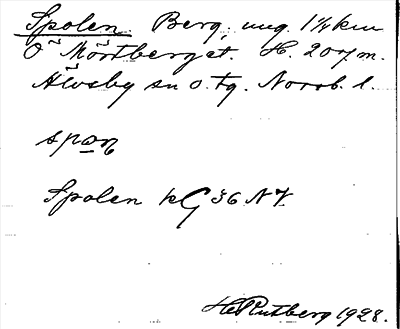 Spolen. Berg, ung. 1¼ km
Ö Mörtberget. H. 207 m.
Älvsby sn o. tg. Norrb. l.
Spolen kG 36 NV.
H. Rutberg 1928.